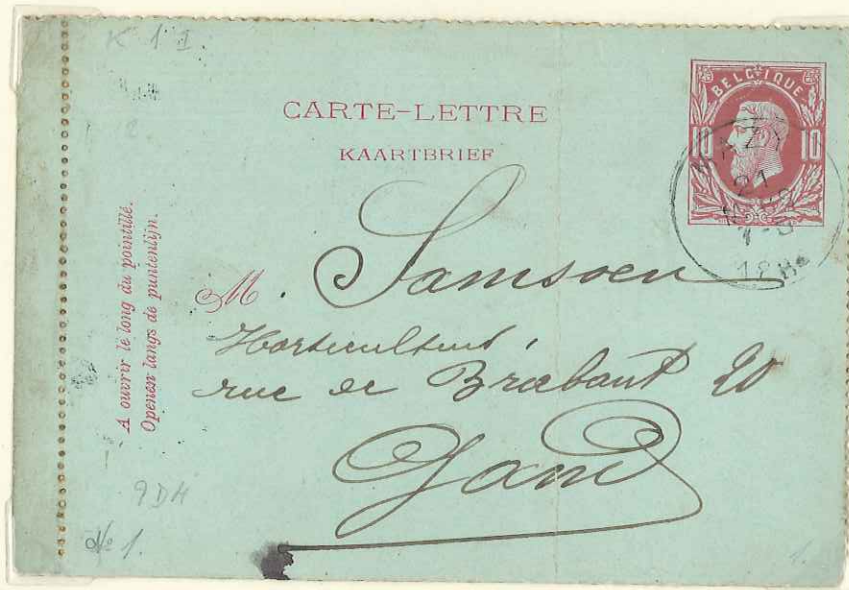 K 1 I.
CARTE-LETTRE
KAARTBRIEF
BELGIQUE
10 10
MAZY
21
7-8
A ouvrir le long du pointillé.
Openen langs de puntenlijn.
M. Samsoen
Horticulteur,
rue de Brabant 20
Gand
9DH
No 1.
1.